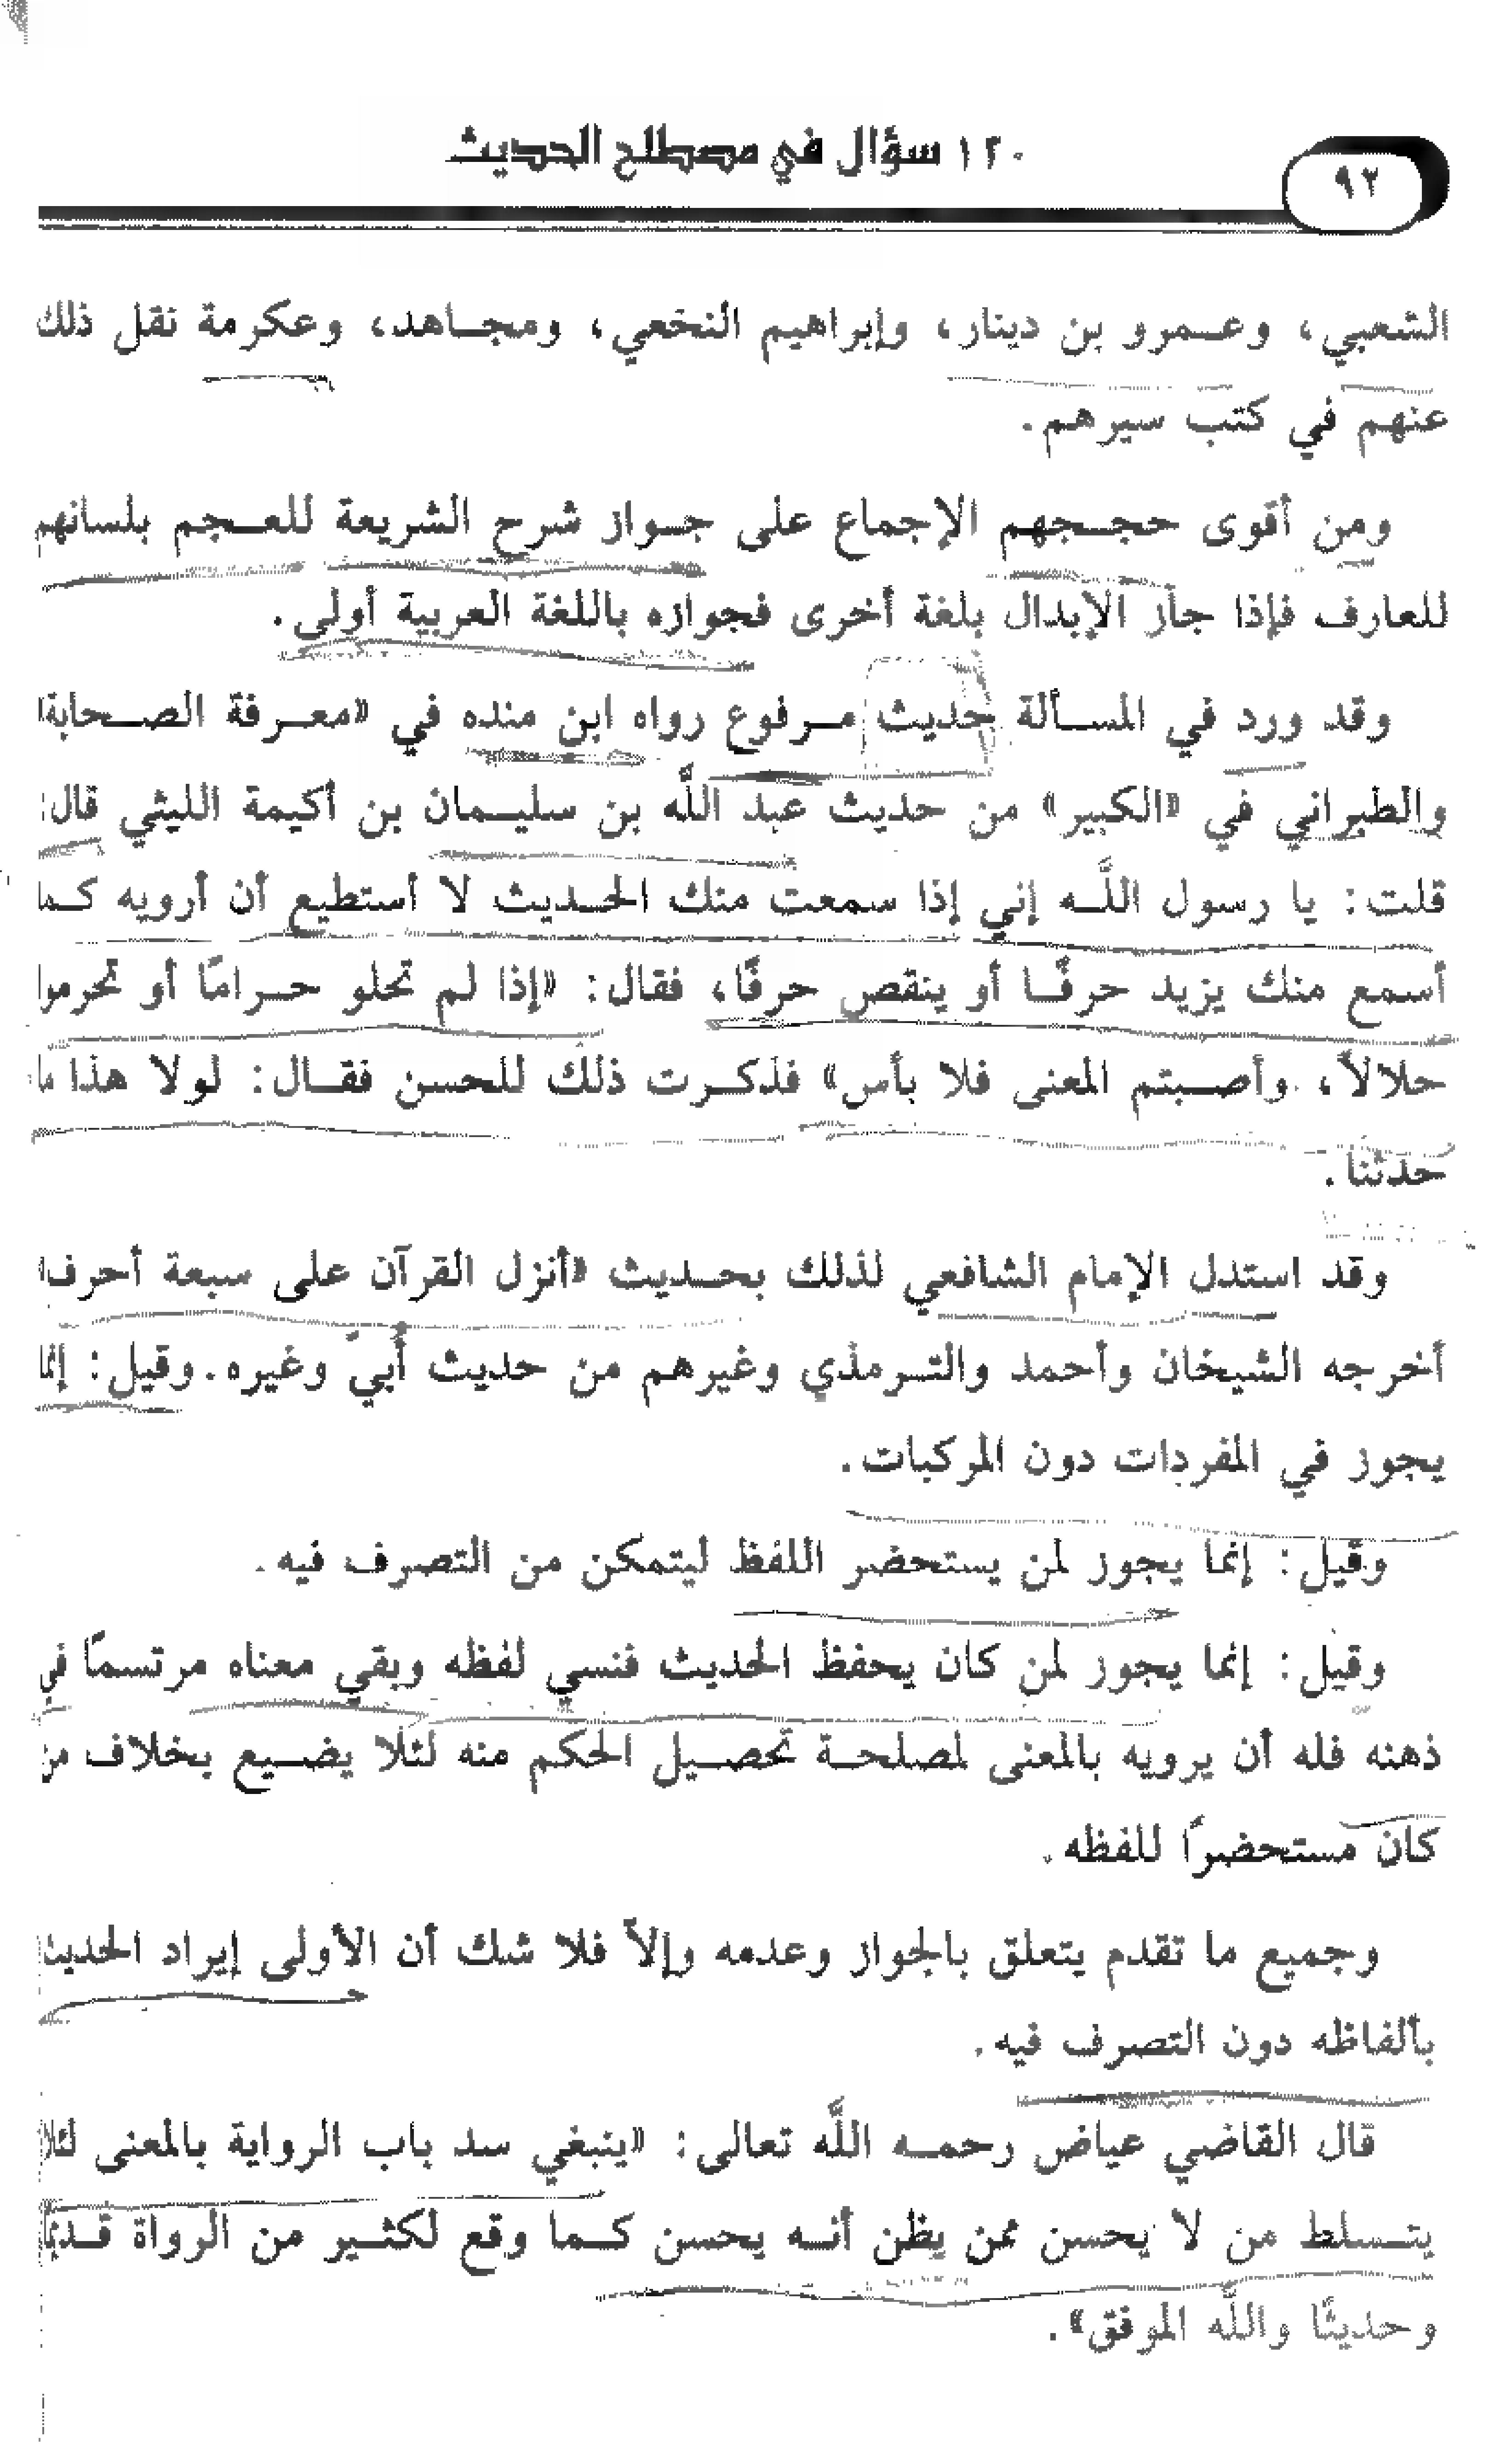 ١٢٠ سؤال في مصطلح الحديث
٩٢
الشعبي، وعمرو بن دينار، وإبراهيم النخعي، ومجاهد، وعكرمة نقل ذلك
عنهم في كتب سيرهم.
ومن أقوى حججهم الإجماع على جواز شرح الشريعة للعجم بلسانهم
للعارف فإذا جاز الإبدال بلغة أخرى فجوازه باللغة العربية أولى.
وقد ورد في المسألة حديث مرفوع رواه ابن منده في «معرفة الصحابة»
والطبراني في «الكبير» من حديث عبد اللَّه بن سليمان بن أكيمة الليثي قال:
قلت: يا رسول اللَّه إني إذا سمعت منك الحديث لا أستطيع أن أرويه كما
أسمع منك يزيد حرفًا أو ينقص حرفًا، فقال: «إذا لم تحلو حرامًا أو تحرموا
حلالاً، وأصبتم المعنى فلا بأس» فذكرت ذلك للحسن فقال: لولا هذا ما
حدثنا.
وقد استدل الإمام الشافعي لذلك بحديث «أنزل القرآن على سبعة أحرف»
أخرجه الشيخان وأحمد والترمذي وغيرهم من حديث أُبيّ وغيره. وقيل: إنما
يجوز في المفردات دون المركبات.
وقيل: إنما يجوز لمن يستحضر اللفظ ليتمكن من التصرف فيه.
وقيل: إنما يجوز لمن كان يحفظ الحديث فنسي لفظه وبقي معناه مرتسمًا في
ذهنه فله أن يرويه بالمعنى لمصلحة تحصيل الحكم منه لئلا يضيع بخلاف من
كان مستحضرًا للفظه.
وجميع ما تقدم يتعلق بالجواز وعدمه وإلاّ فلا شك أن الأولى إيراد الحديث
بألفاظه دون التصرف فيه.
قال القاضي عياض رحمه اللَّه تعالى: «ينبغي سد باب الرواية بالمعنى لئلا
يتسلط من لا يحسن ممن يظن أنه يحسن كما وقع لكثير من الرواة قديمًا
وحديثًا واللَّه الموفق».